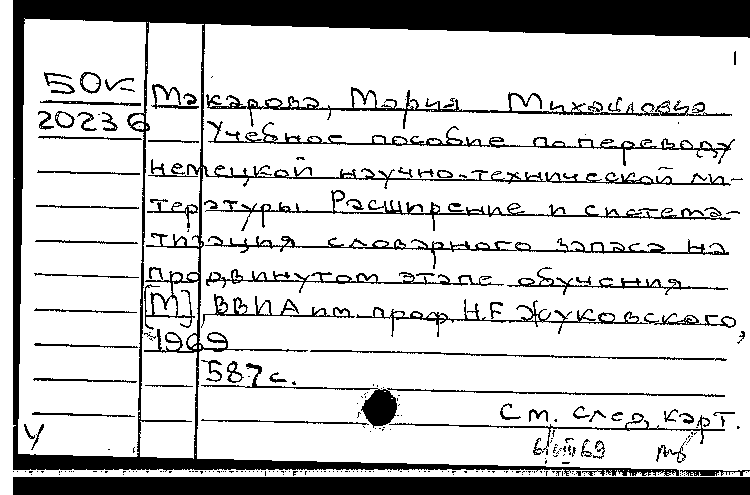 1
50к Макарова, Мария Михайловна
20236 Учебное пособие по переводу
немецкой научно-технической ли-
тературы. Расширение и система-
тизация словарного запаса на
продвинутом этапе обучения
[М] ВВИА им. проф. Н.Е Жуковского,
1969
587 с.
См. след. карт.
У 6/VIII 69